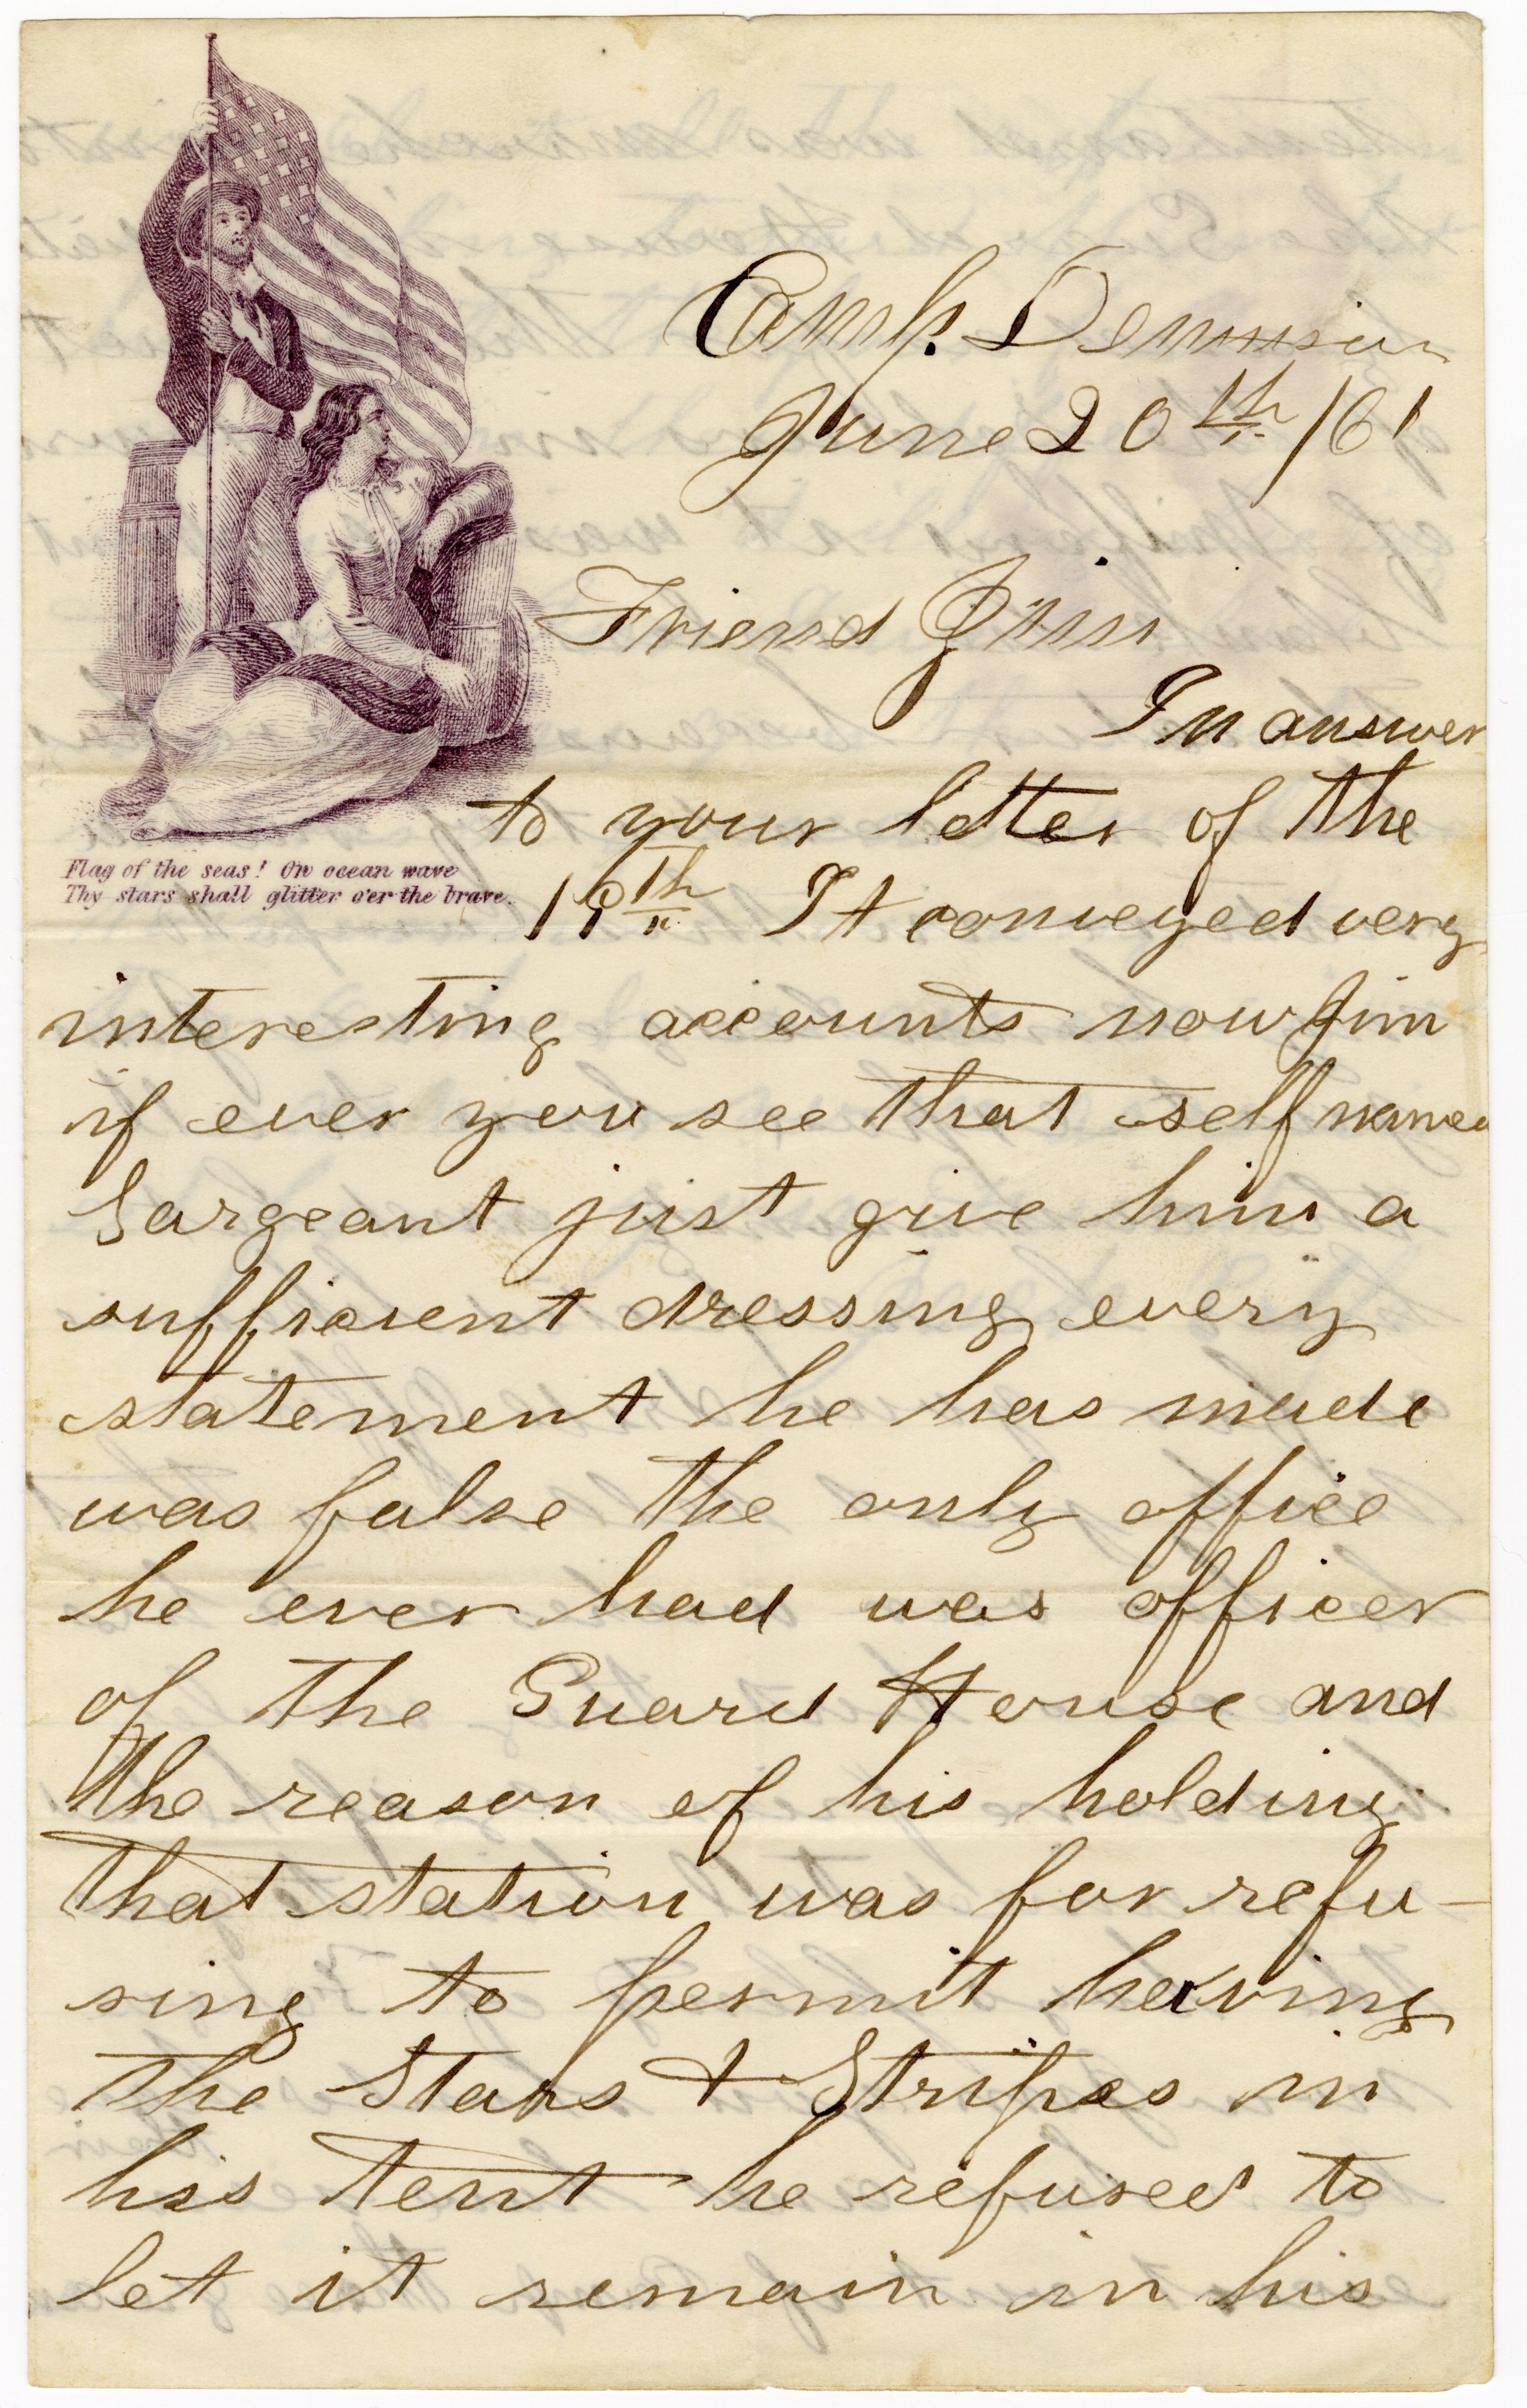 Camp. Dennison
June 20th /61
Friend Jim
In answer
to your letter of the
Flag of the seas! On ocean wave
Thy stars shall glitter o'er the brave.
19th It conveyed very
interesting accounts now Jim
if ever you see that self named
Sargeant just give him a
sufficient dressing every
statement he has made
was false the only office
he ever had was officer
of the Guard House and
the reason of his holding
that station was for refu-
sing to permit having
the Stars & Stripes in
his tent he refused to
let it remain in his